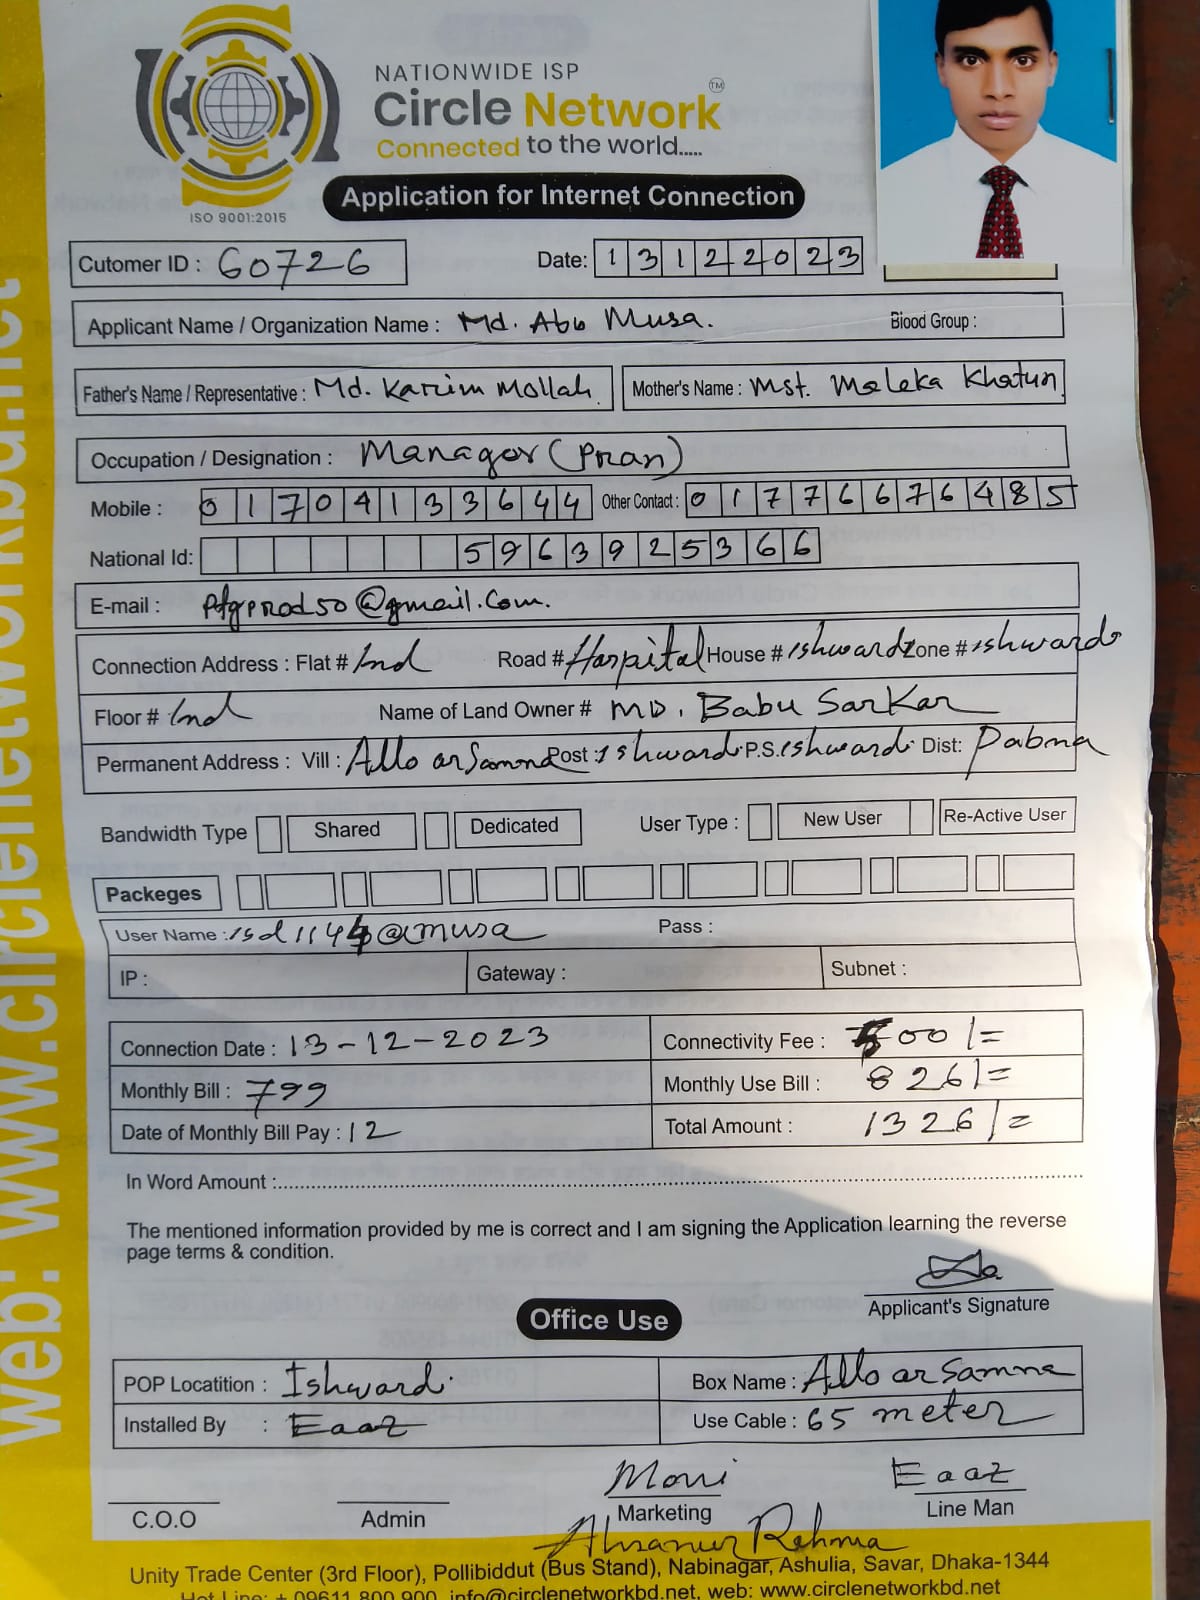 NATIONWIDE ISP
Circle Network™
Connected to the world.....
ISO 9001:2015
Application for Internet Connection
Cutomer ID : 60726 Date: 13122023
Applicant Name / Organization Name : Md. Abu Musa. Blood Group :
Father's Name / Representative : Md. Karim Mollah Mother's Name : Mst. Maleka Khatun
Occupation / Designation : Manager (Pran)
Mobile : 01704133644 Other Contact : 01776676485
National Id: 5963925366
E-mail : Pfgprod50@gmail.com.
Connection Address : Flat # Ind Road # Hospital House # Ishwardi Zone # Ishwardi
Floor # Ind Name of Land Owner # MD. Babu Sarkar
Permanent Address : Vill : Allo arSamna Post : Ishwardi P.S. Ishwardi Dist: Pabna
Bandwidth Type Shared Dedicated User Type : New User Re-Active User
Packeges
User Name : isd1144@musa Pass :
IP : Gateway : Subnet :
Connection Date : 13-12-2023 Connectivity Fee : 500/=
Monthly Bill : 799 Monthly Use Bill : 826/=
Date of Monthly Bill Pay : 12 Total Amount : 1326/=
In Word Amount :
The mentioned information provided by me is correct and I am signing the Application learning the reverse
page terms & condition.
Applicant's Signature
Office Use
POP Locatition : Ishwardi Box Name : Allo arSamna
Installed By : Eaaz Use Cable : 65 meter
Moni Eaaz
C.O.O Admin Marketing Line Man
Ahsanur Rahman
Unity Trade Center (3rd Floor), Pollibiddut (Bus Stand), Nabinagar, Ashulia, Savar, Dhaka-1344
Hot Line: + 09611 800 900, info@circlenetworkbd.net, web: www.circlenetworkbd.net
web: www.circlenetworkbd.net